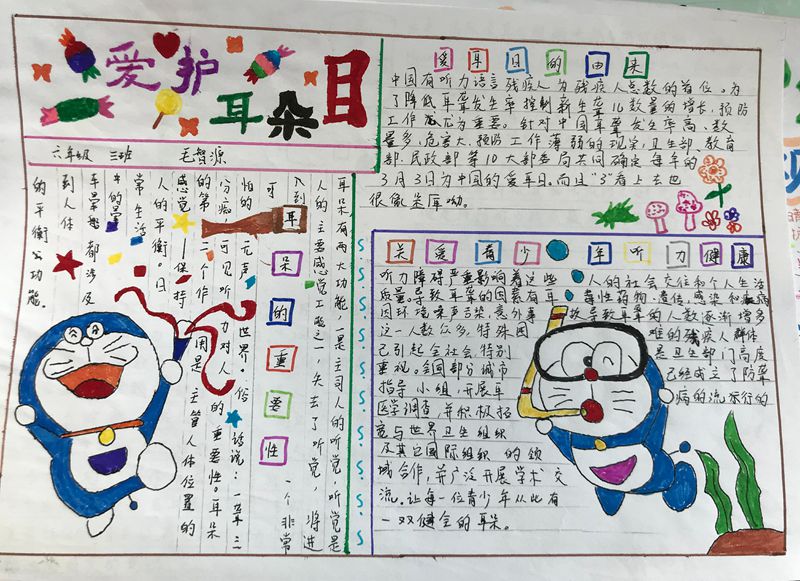 爱护
耳朵日
六年级 三班 毛智源
爱耳日的由来
中国有听力语言残疾人为残疾人总数的首位。为
了降低耳聋发生率控制新生聋儿数量的增长，预防
工作尤为重要。针对中国耳聋发生率高、数
量多、危害大，预防工作薄弱的现实，卫生部、教育
部、民政部等10大部委局共同确定每年的
3月3日为中国的爱耳日。而且"3"看上去也
很像耳廓呦。
耳朵的重要性
耳朵有两大功能，一是主司人的听觉，听觉是
人的主要感觉之一，失去了听觉，将进
入到一个非常
可怕的无声世界。俗话说：一聋三
分痴，可见听力对人的重要性。耳朵
的第二个作用是主管人体位置的
感觉—保持
人的平衡。日
常生活
中的晕
车晕船都涉及
到人体
的平衡功能。
关爱青少年听力健康
听力障碍严重影响着这些人的社会交往和个人生活
质量。导致耳聋的因素有耳毒性药物、遗传、感染和疾病
因环境噪声污染、意外事故导致耳聋的人数逐渐增多
这一人数众多，特殊困难的残疾人群体
已引起全社会特别是卫生部门高度
重视。全国部分城市已经成立了防聋
指导小组，开展耳病的流行的
医学调查，并积极拓
宽与世界卫生组织
及其它国际组织的领
域合作，并广泛开展学术交
流。让每一位青少年从此有
一双健全的耳朵。